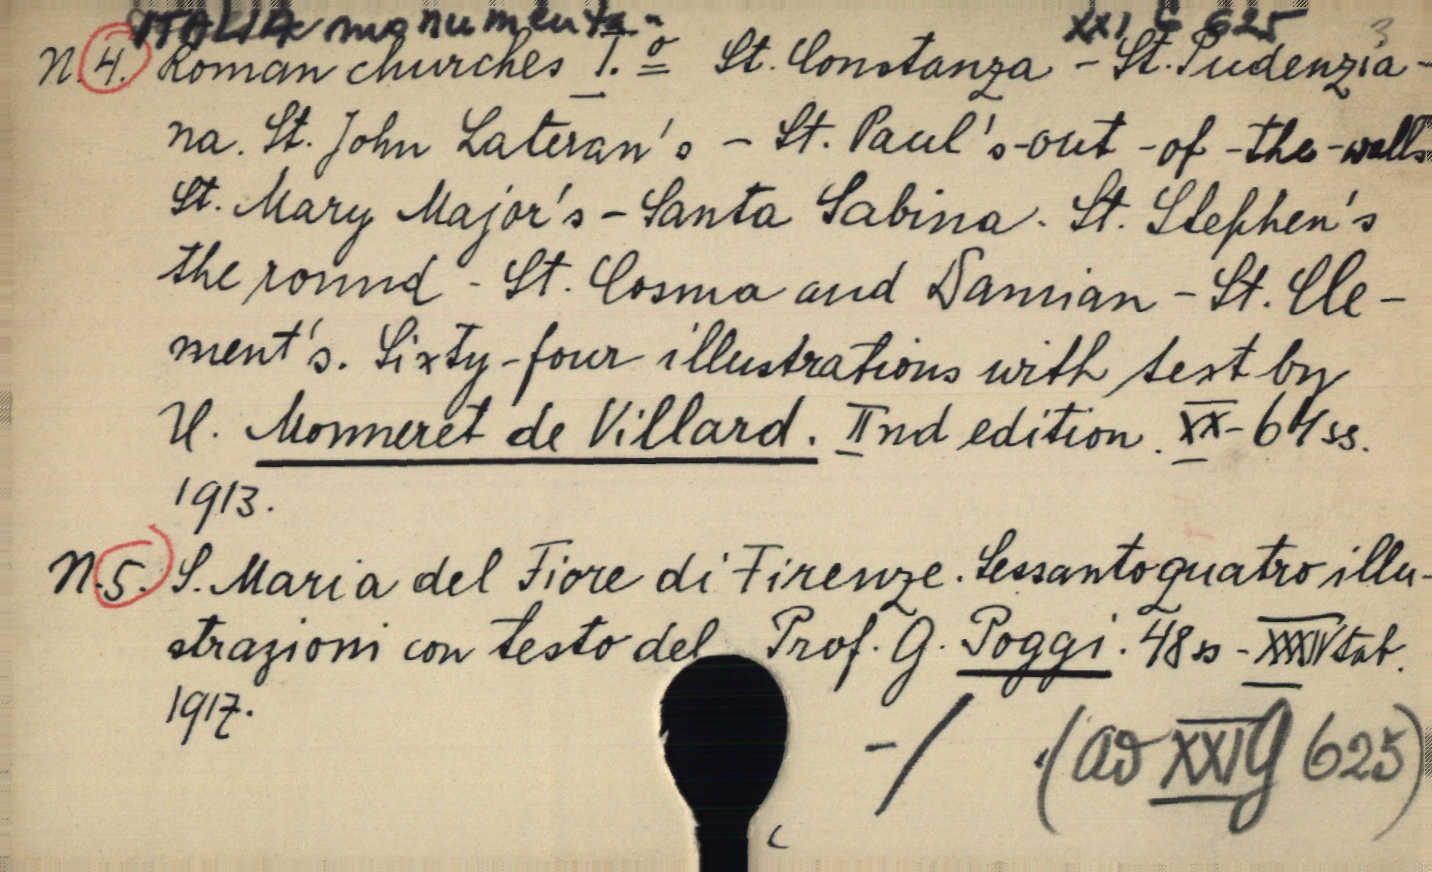 ITALIA monumenta. XXI G 625 3
N. 4. Roman churches I.º St. Constanza - St. Pudenzia-
na. St. John Lateran's - St. Paul's-out-of-the-walls
St. Mary Major's - Santa Sabina. St. Stephen's
the round - St. Cosma and Damian - St. Cle-
ment's. Sixty-four illustrations with text by
U. Monneret de Villard. IInd edition. XX-64 ss.
1913.
N. 5. S. Maria del Fiore di Firenze. Sessantoquatro illu-
strazioni con testo del Prof. G. Poggi. 48 ss - XXXIV tab.
1917.
-/ (ad XXI G 625)